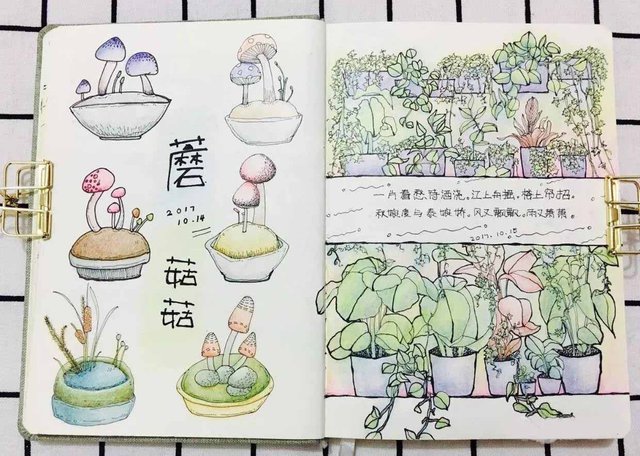 蘑
2017
10.14
菇
菇
一片春愁待酒浇。江上舟摇。楼上帘招。
秋娘度与泰娘桥。风又飘飘。雨又萧萧
2017.10.15